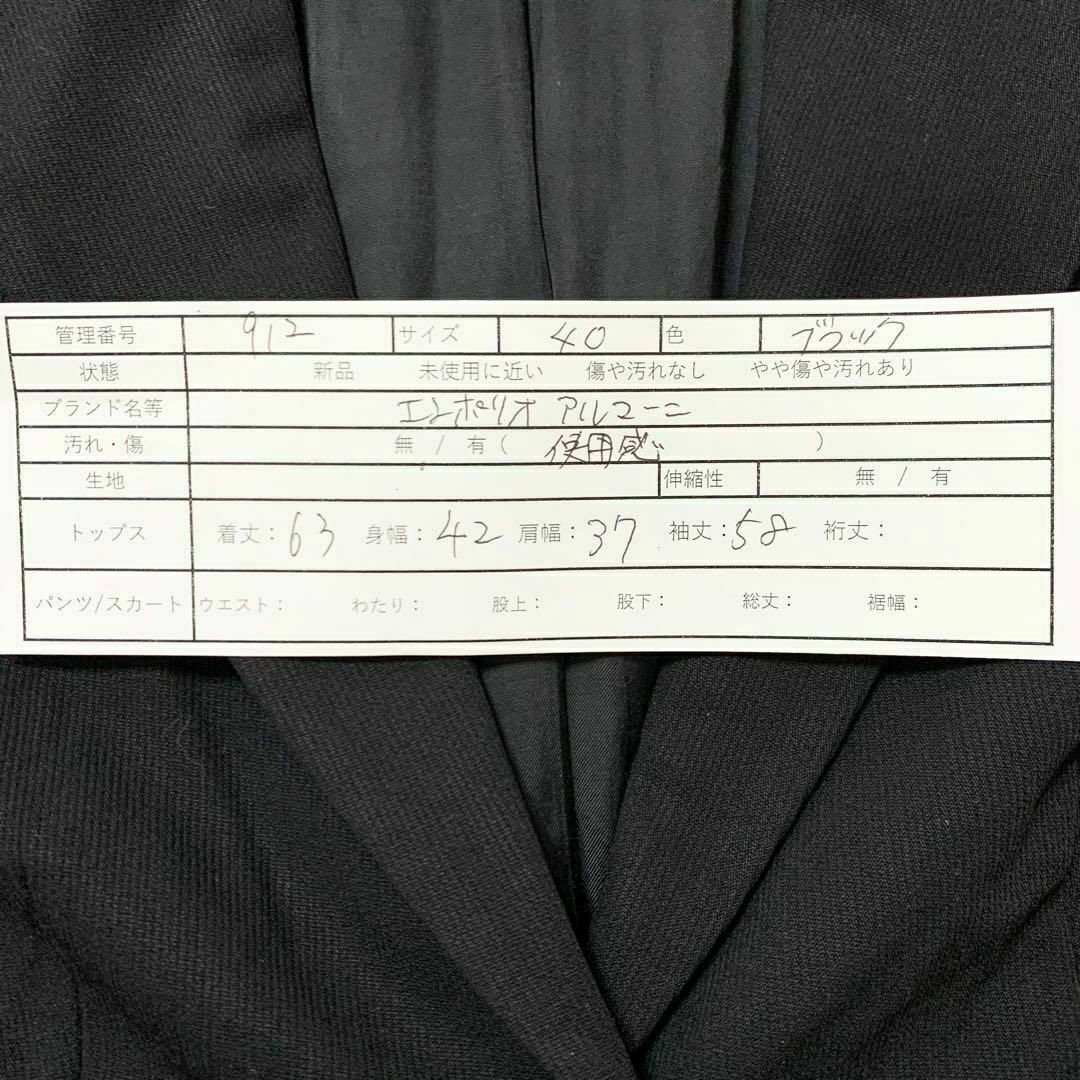 管理番号 912 サイズ 40 色 ブラック
状態 新品 未使用に近い 傷や汚れなし やや傷や汚れあり
ブランド名等 エンポリオ アルマーニ
汚れ・傷 無 / 有 ( 使用感 )
生地 伸縮性 無 / 有
トップス 着丈:63 身幅:42 肩幅:37 袖丈:58 裄丈:
パンツ/スカート ウエスト: わたり: 股上: 股下: 総丈: 裾幅: